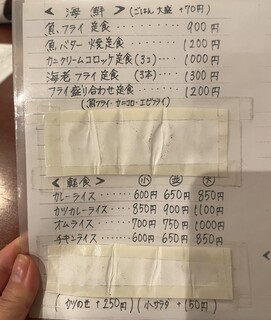 < 海鮮 > (ごはん 大盛 +70円)
魚フライ定食 ········ 900円
魚バター焼定食 ······ 1200円
カニクリームコロッケ定食(3コ) ··· 1000円
海老フライ定食 (3本) ··· 1300円
フライ盛り合わせ定食 ··· 1200円
(魚フライ・カニコロ・エビフライ)
< 軽食 > 小 並 大
カレーライス ········ 600円 650円 850円
カツカレーライス ····· 850円 900円 1100円
オムライス ········ 700円 750円 1000円
チキンライス ······· 600円 650円 850円
(カツのせ +250円) (小サラダ +150円)